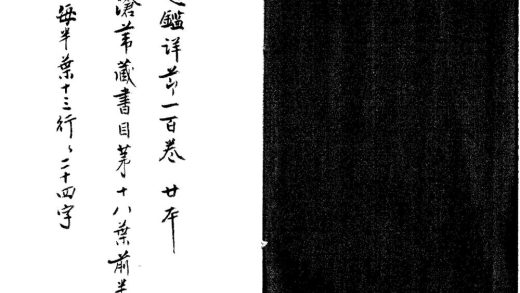 鑑详节一百卷 廿本
滄苇藏書目苐十八葉前半
每半葉十三行〻二十四字